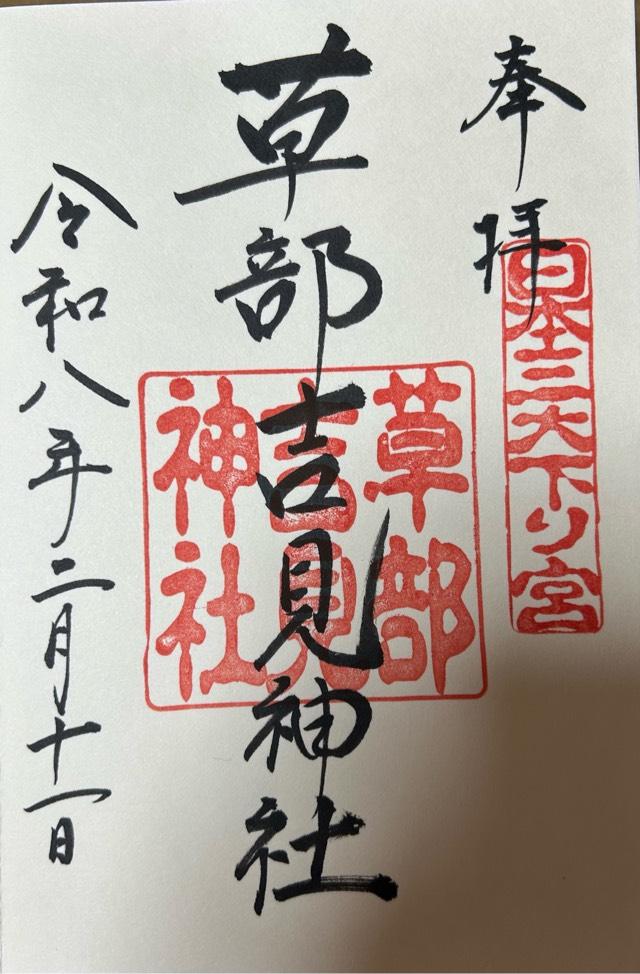 奉拝
日本三大下り宮
草部吉見神社
草部吉見神社
令和八年二月十一日